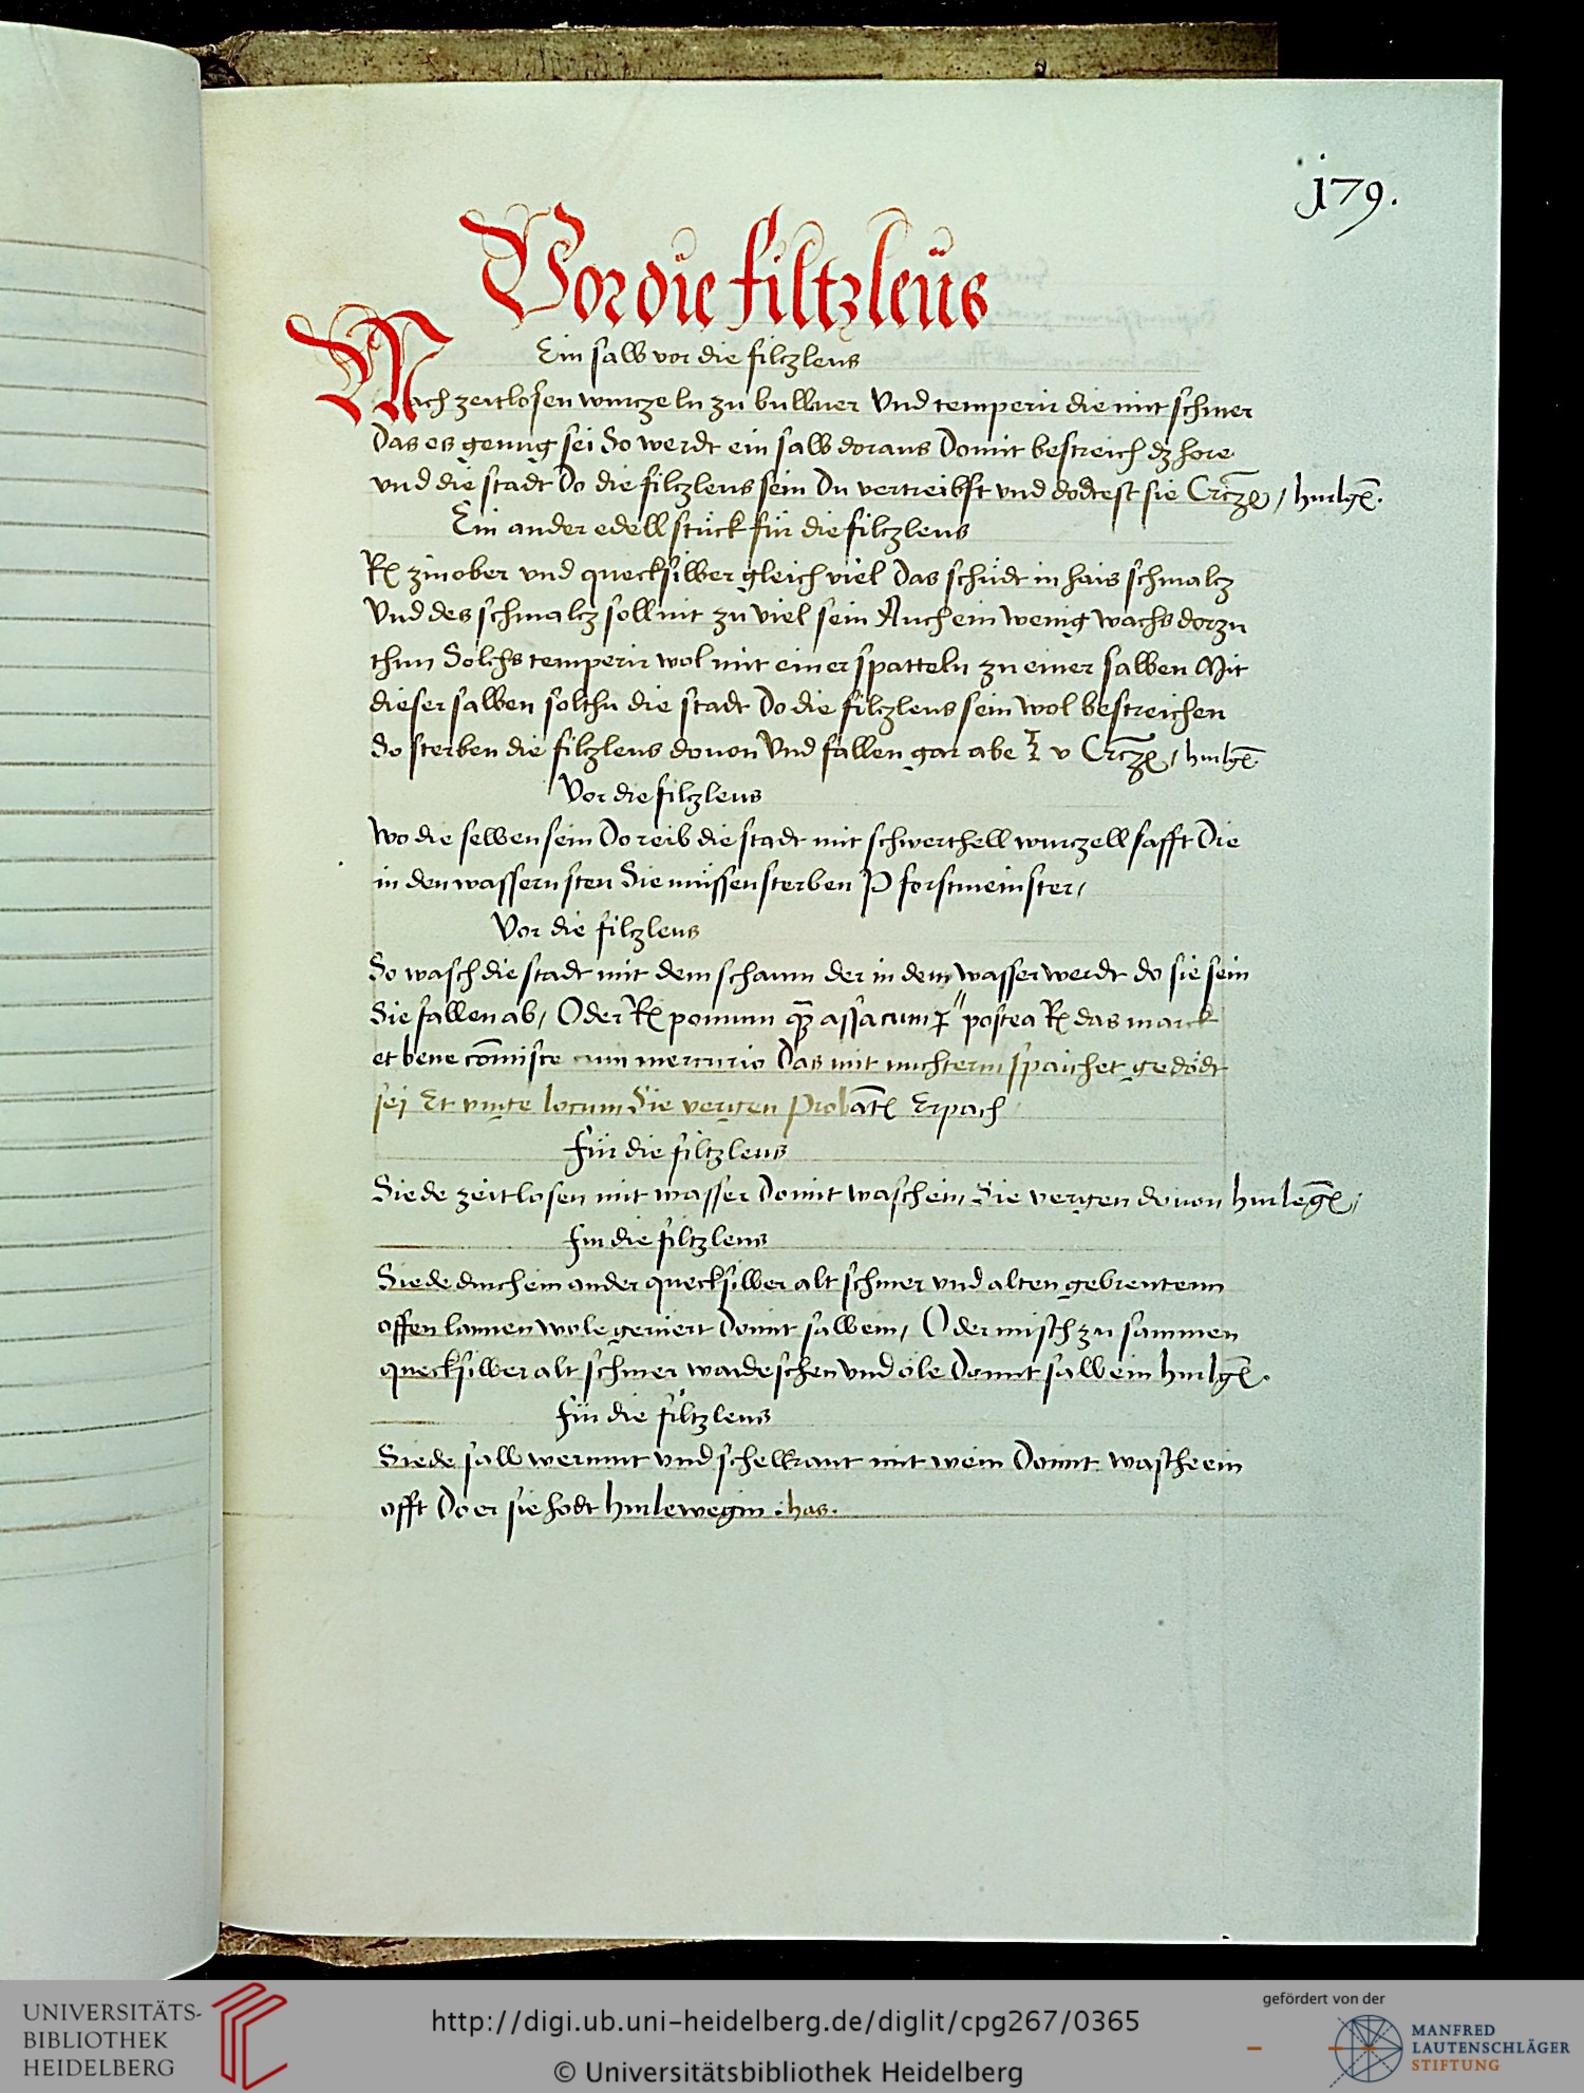 179.
Vor die filtzleüs
Ein salb vor die filczleus
Mach zeitlosen wurczeln zu bulluer Vnd temperir die mit schmer
Das es genug sei So werdt ein salb doraus Domit bestreich dz hore
vnd die stadt Do die filczleus sein Du vertreibst vnd dodtest sie
Ein ander edell stück für die filczleus
Rx zinober vnd quecksilber gleich viel Das schüdt in hais schmalcz
Vnd des schmalcz soll nit zu viel sein Auch ein wenig wachs dorzu
thun Solchs temperir wol mit einer spatteln zu einer salben Mit
dieser salben solthu die stadt Do die filczleus sein wol bestreichen
So sterben die filczleus douon Vnd fallen gar abe
Vor die filczleus
Wo die selben sein Do reib die stadt mit schwerthell wurczell safft Die
in den wassern sten Sie müssen sterben P forstmeinster,
Vor die filczleus
So wasch die stadt mit dem schaum der in dem wasser werdt do sie sein
Sie fallen ab, Oder Rx pomum assatum postea Rx das marck
et bene cōmisce cum mercurio Das mit nuchterm spaichet gedödt
sej Et vnge locum Sie vergen Probatē Erpach
Für die filtzleus
Siede zeitlosen mit wasser Domit wasch ein, Sie vergen douon
Für die filtzleus
Siede durch ein ander quecksilber alt schmer vnd alten gebrentenn
offen lamen wole geruert Domit salb ein, Oder misch zu sammen
quecksilber alt schmer waideschen vnd öle Domit salb ein
Für die filtzleus
Siede salb wermut vnd schelkraut mit wein Domit wasche ein
offt Do er sie hodt hurlewegin has.
UNIVERSITÄTS-
BIBLIOTHEK
HEIDELBERG
http://digi.ub.uni-heidelberg.de/diglit/cpg267/0365
© Universitätsbibliothek Heidelberg
gefördert von der
MANFRED
LAUTENSCHLÄGER
STIFTUNG